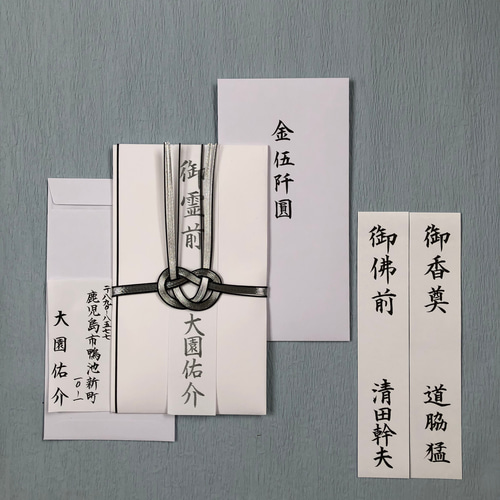 御香奠 道脇猛
御佛前 清田幹夫
金伍阡圓
御霊前
大園佑介
〒八九〇-八五七七
鹿児島市鴨池新町
一〇-一
大園佑介